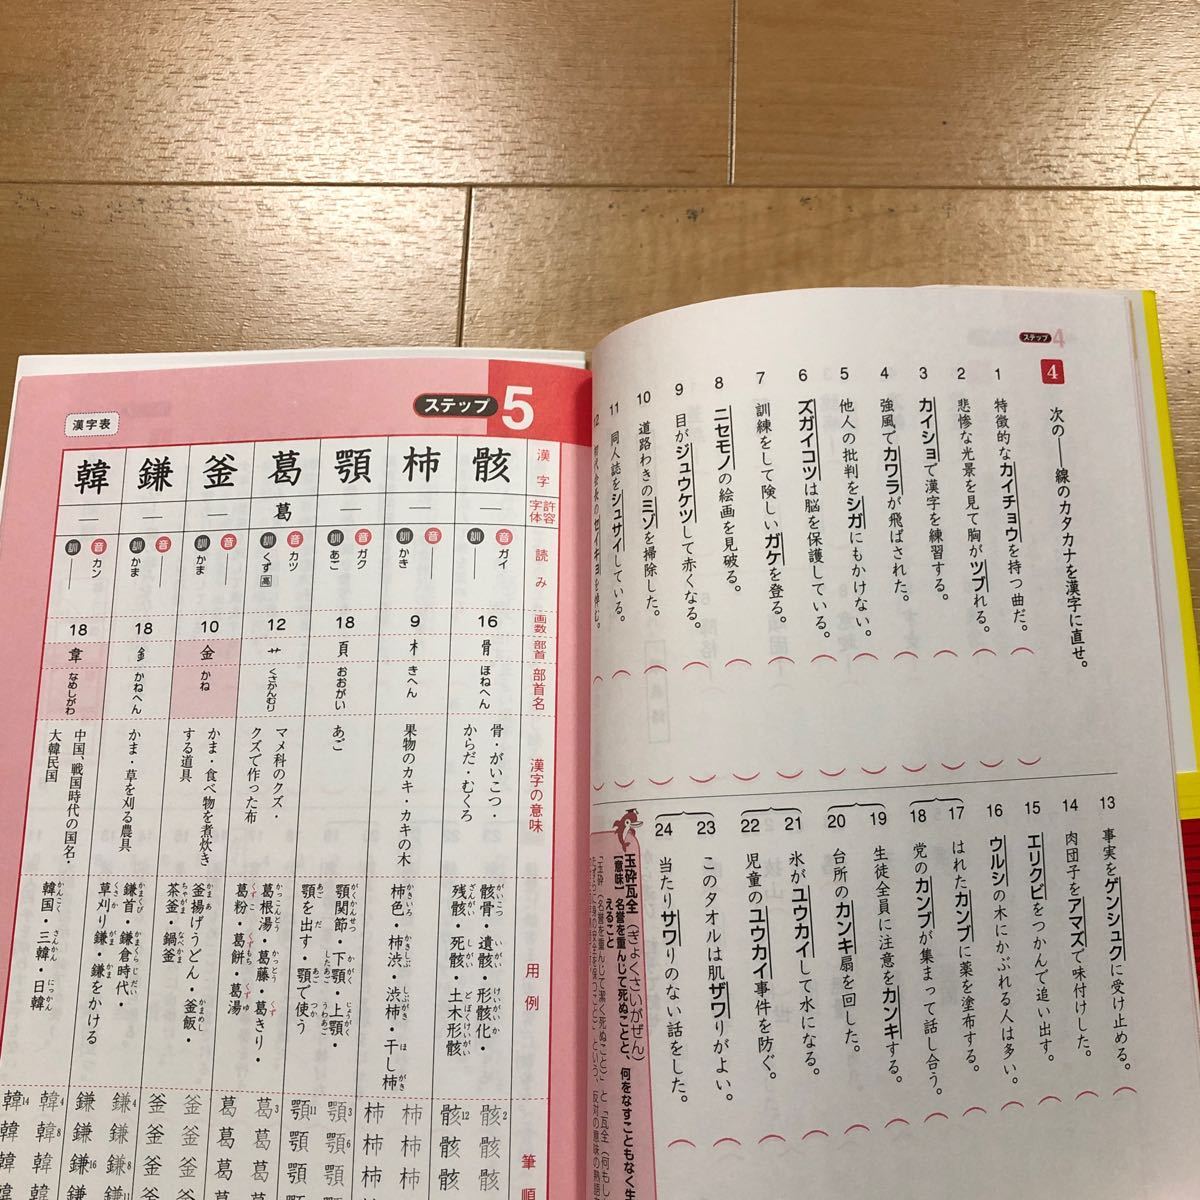 ステップ4
4 次の――線のカタカナを漢字に直せ。
1 特徴的なカイチョウを持つ曲だ。
2 悲惨な光景を見て胸がツブれる。
3 カイショで漢字を練習する。
4 強風でカワラが飛ばされた。
5 他人の批判をシガにもかけない。
6 ズガイコツは脳を保護している。
7 訓練をして険しいガケを登る。
8 ニセモノの絵画を見破る。
9 目がジュウケツして赤くなる。
10 道路わきのミゾを掃除した。
11 同人誌をシュサイしている。
12
13 事実をゲンシュクに受け止める。
14 肉団子をアマズで味付けした。
15 エリクビをつかんで追い出す。
16 ウルシの木にかぶれる人は多い。
17 はれたカンブに薬を塗布する。
18 党のカンブが集まって話し合う。
19 生徒全員に注意をカンキする。
20 台所のカンキ扇を回した。
21 氷がユウカイして水になる。
22 児童のユウカイ事件を防ぐ。
23 このタオルは肌ザワりがよい。
24 当たりサワりのない話をした。
玉砕瓦全(ぎょくさいがぜん)
【意味】名誉を重んじて死ぬことと、何をなすこともなく生
えること
「玉砕(名誉を重んじて潔く死ぬこと)」と「瓦全(何もし
ステップ 5
漢字表
漢字 許容字体 読み 画数 部首 部首名 漢字の意味 用例 筆順
骸 ― 音 ガイ 訓 ― 16 骨 ほねへん 骨・がいこつ・からだ・むくろ 骸骨・遺骸・形骸化・残骸・死骸・土木形骸
柿 ― 音 ― 訓 かき 9 木 きへん 果物のカキ・カキの木 柿色・柿渋・渋柿・干し柿
顎 ― 音 ガク 訓 あご 18 頁 おおがい あご 顎関節・下顎・上顎・顎を出す・顎で使う
葛 葛 音 カツ 訓 くず高 12 艹 くさかんむり マメ科のクズ・クズで作った布 葛根湯・葛藤・葛きり・葛粉・葛餅・葛湯
釜 ― 音 ― 訓 かま 10 金 かね かま・食べ物を煮炊きする道具 釜揚げうどん・釜飯・茶釜・鍋釜
鎌 ― 音 ― 訓 かま 18 釒 かねへん かま・草を刈る農具 鎌首・鎌倉時代・草刈り鎌・鎌をかける
韓 ― 音 カン 訓 ― 18 韋 なめしがわ 中国、戦国時代の国名・大韓民国 韓国・三韓・日韓